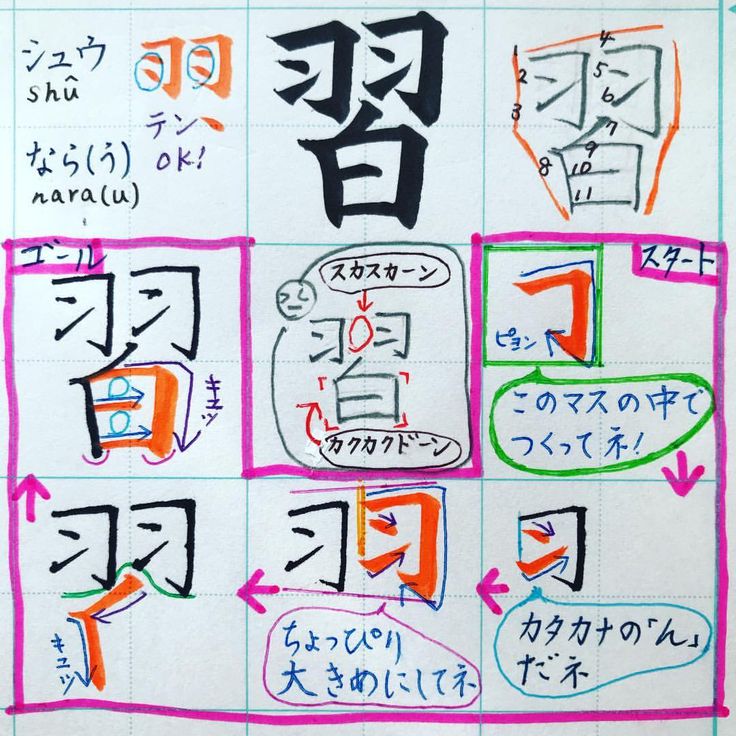 シュウ
shû
なら(う)
nara(u)
羽
テン、
OK!
習
習
1
2
3
4
5
6
7
8
9
10
11
スタート
ピョン
このマスの中で
つくってネ!
カタカナの「ん」
だネ
羽
ちょっぴり
大きめにしてネ
羽
キュッ
ゴール
習
キュッ
スカスカーン
習
カクカクドーン